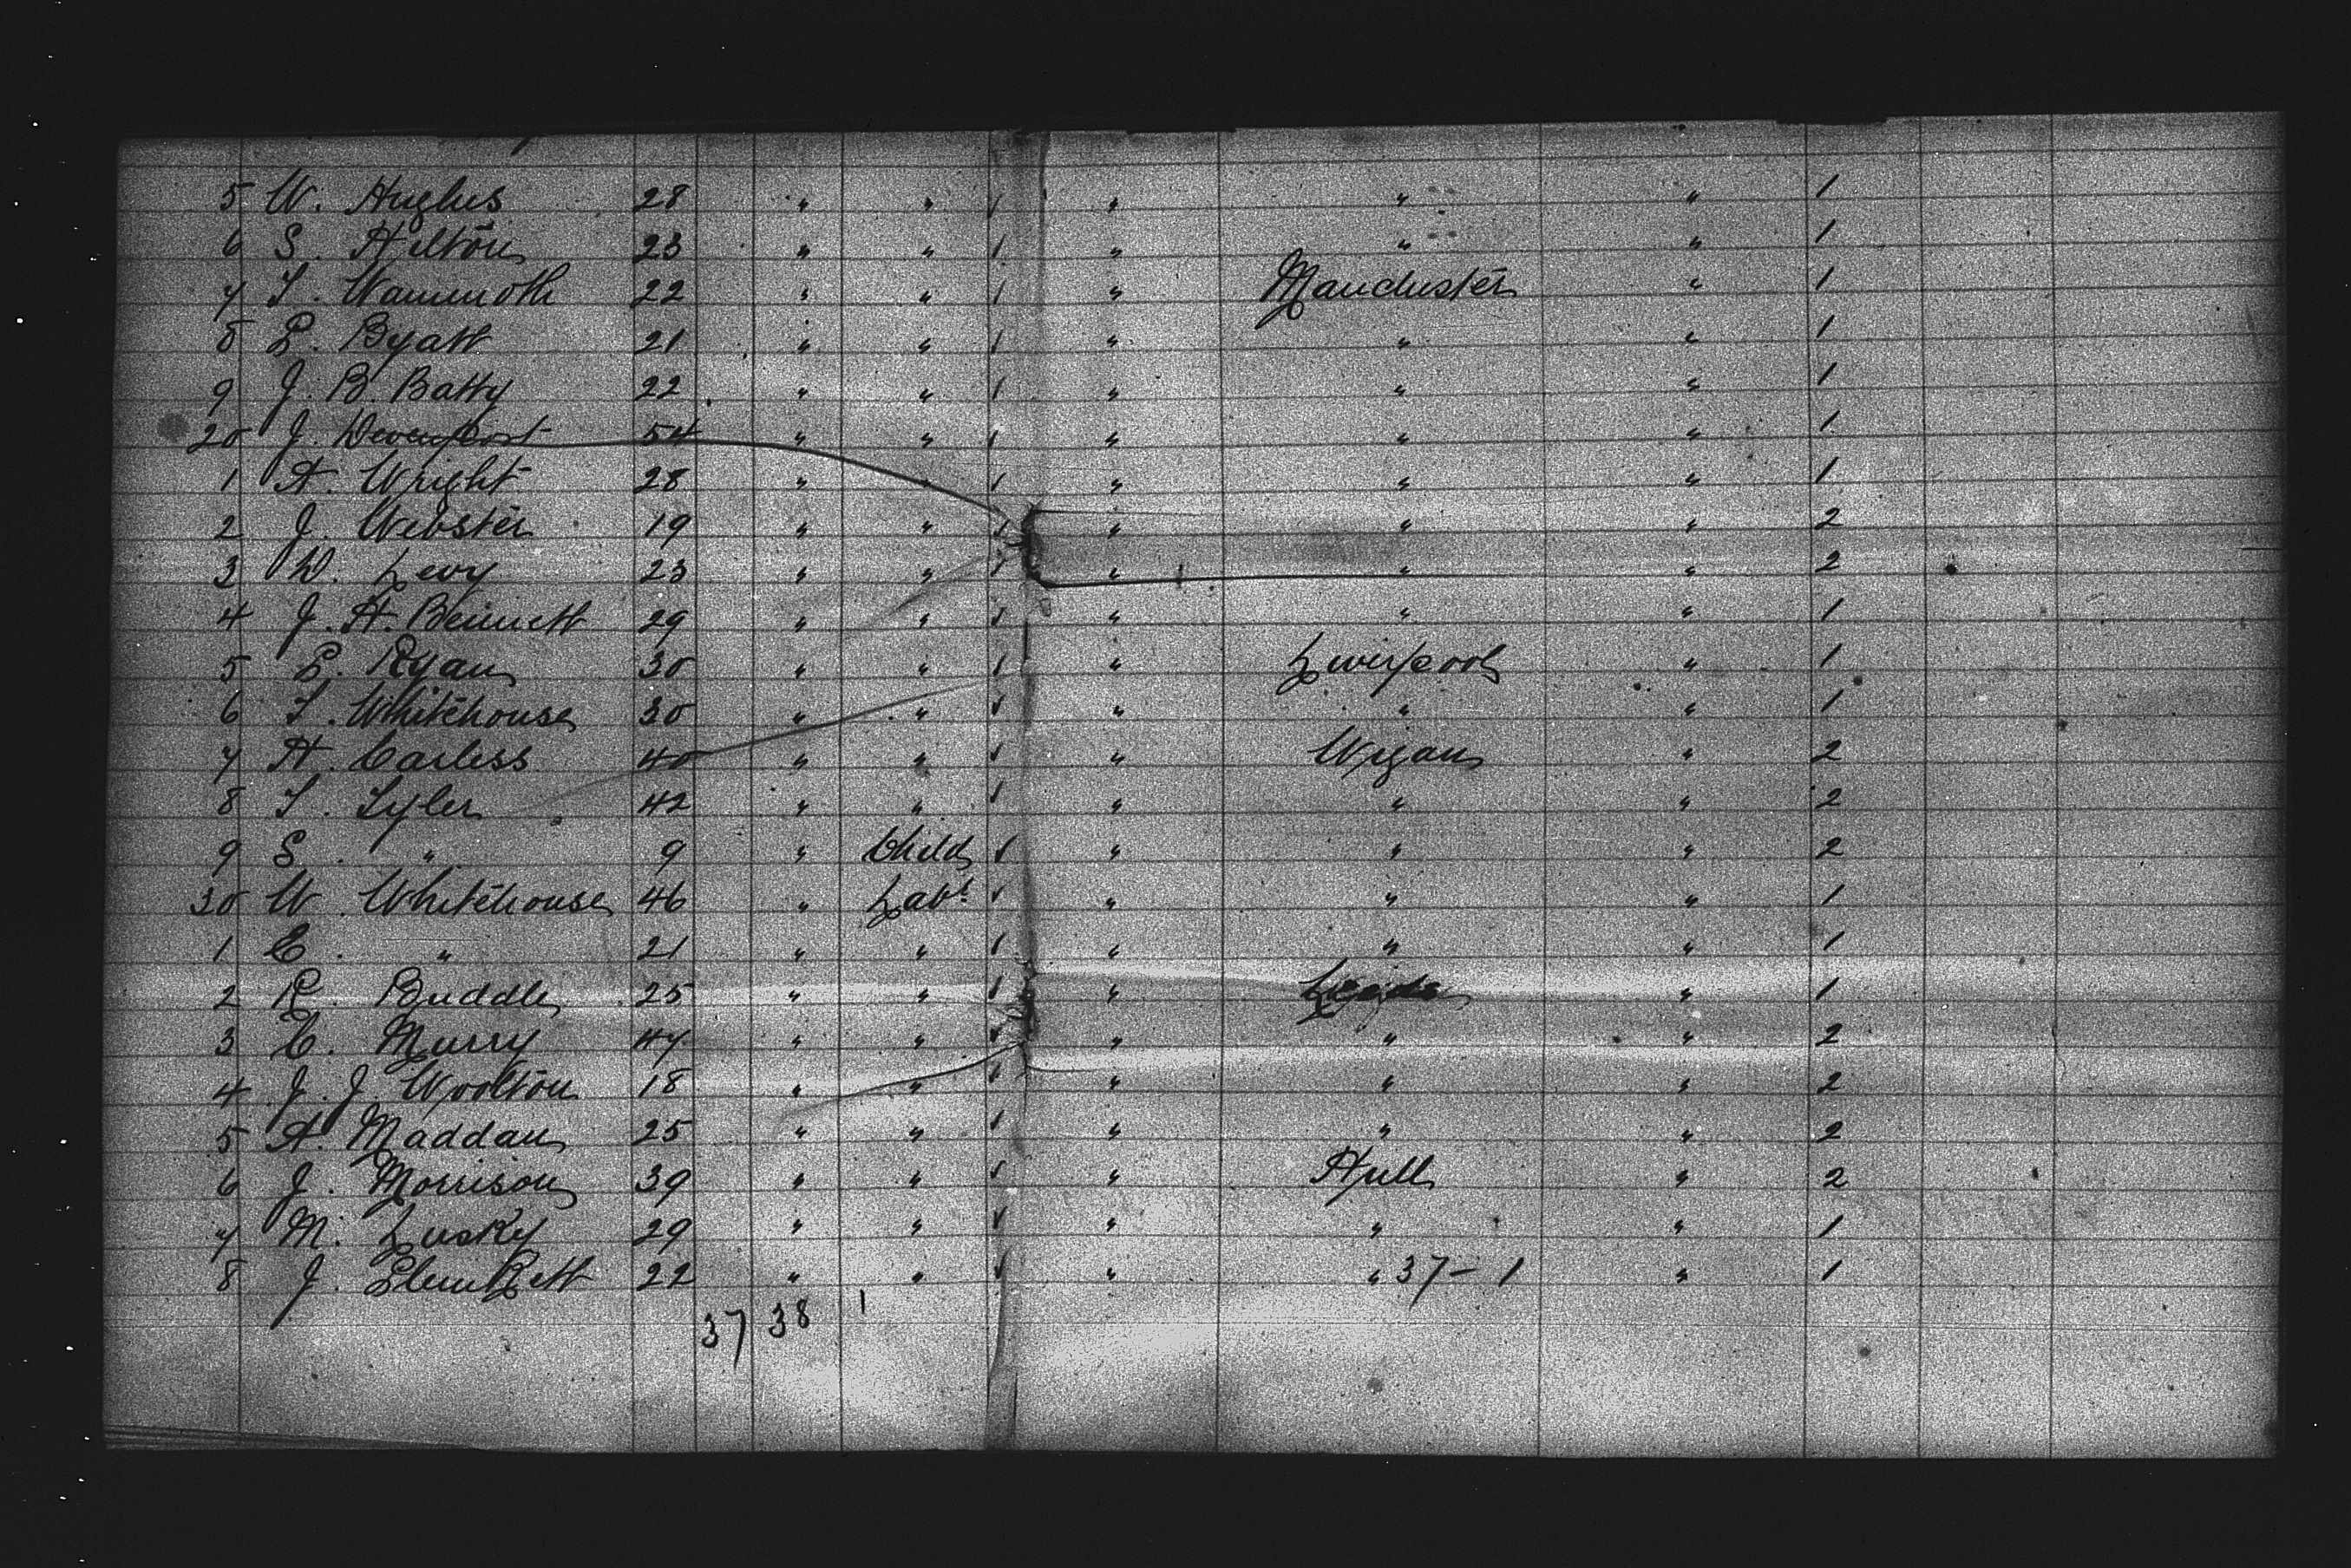 5 W. Hughes 28 " " / " " " 1
6 S. Hilton 23 " " / " " " 1
7 T. Wammoth 22 " " / " Manchester " 1
8 P. Byatt 21 " " / " " " 1
9 J. B. Batty 22 " " / " " " 1
20 J. Devenport 54 " " / " " " 1
1 A. Wright 28 " " / " " " 1
2 J. Webster 19 " " / " " " 2
3 D. Levy 23 " " / " " " 2
4 J. H. Bennett 29 " " / " " " 1
5 P. Ryan 30 " " / " Liverpool " 1
6 T. Whitehouse 30 " " / " " " 1
7 H. Carless 40 " " / " Wigan " 2
8 T. Tyler 42 " " / " " " 2
9 S. " 9 " Child / " " " 2
30 W. Whitehouse 46 " Labr / " " " 1
1 C. " 21 " " / " " " 1
2 R. Buddle 25 " " / " Leeds " 1
3 C. Murry 47 " " / " " " 2
4 J. J. Woolton 18 " " / " " " 2
5 A. Maddan 25 " " / " " " 2
6 J. Morrison 39 " " / " Hull " 2
7 M. Lusky 29 " " / " " " 1
8 J. 22 " " / " " 37-1 " 1
37 38 1